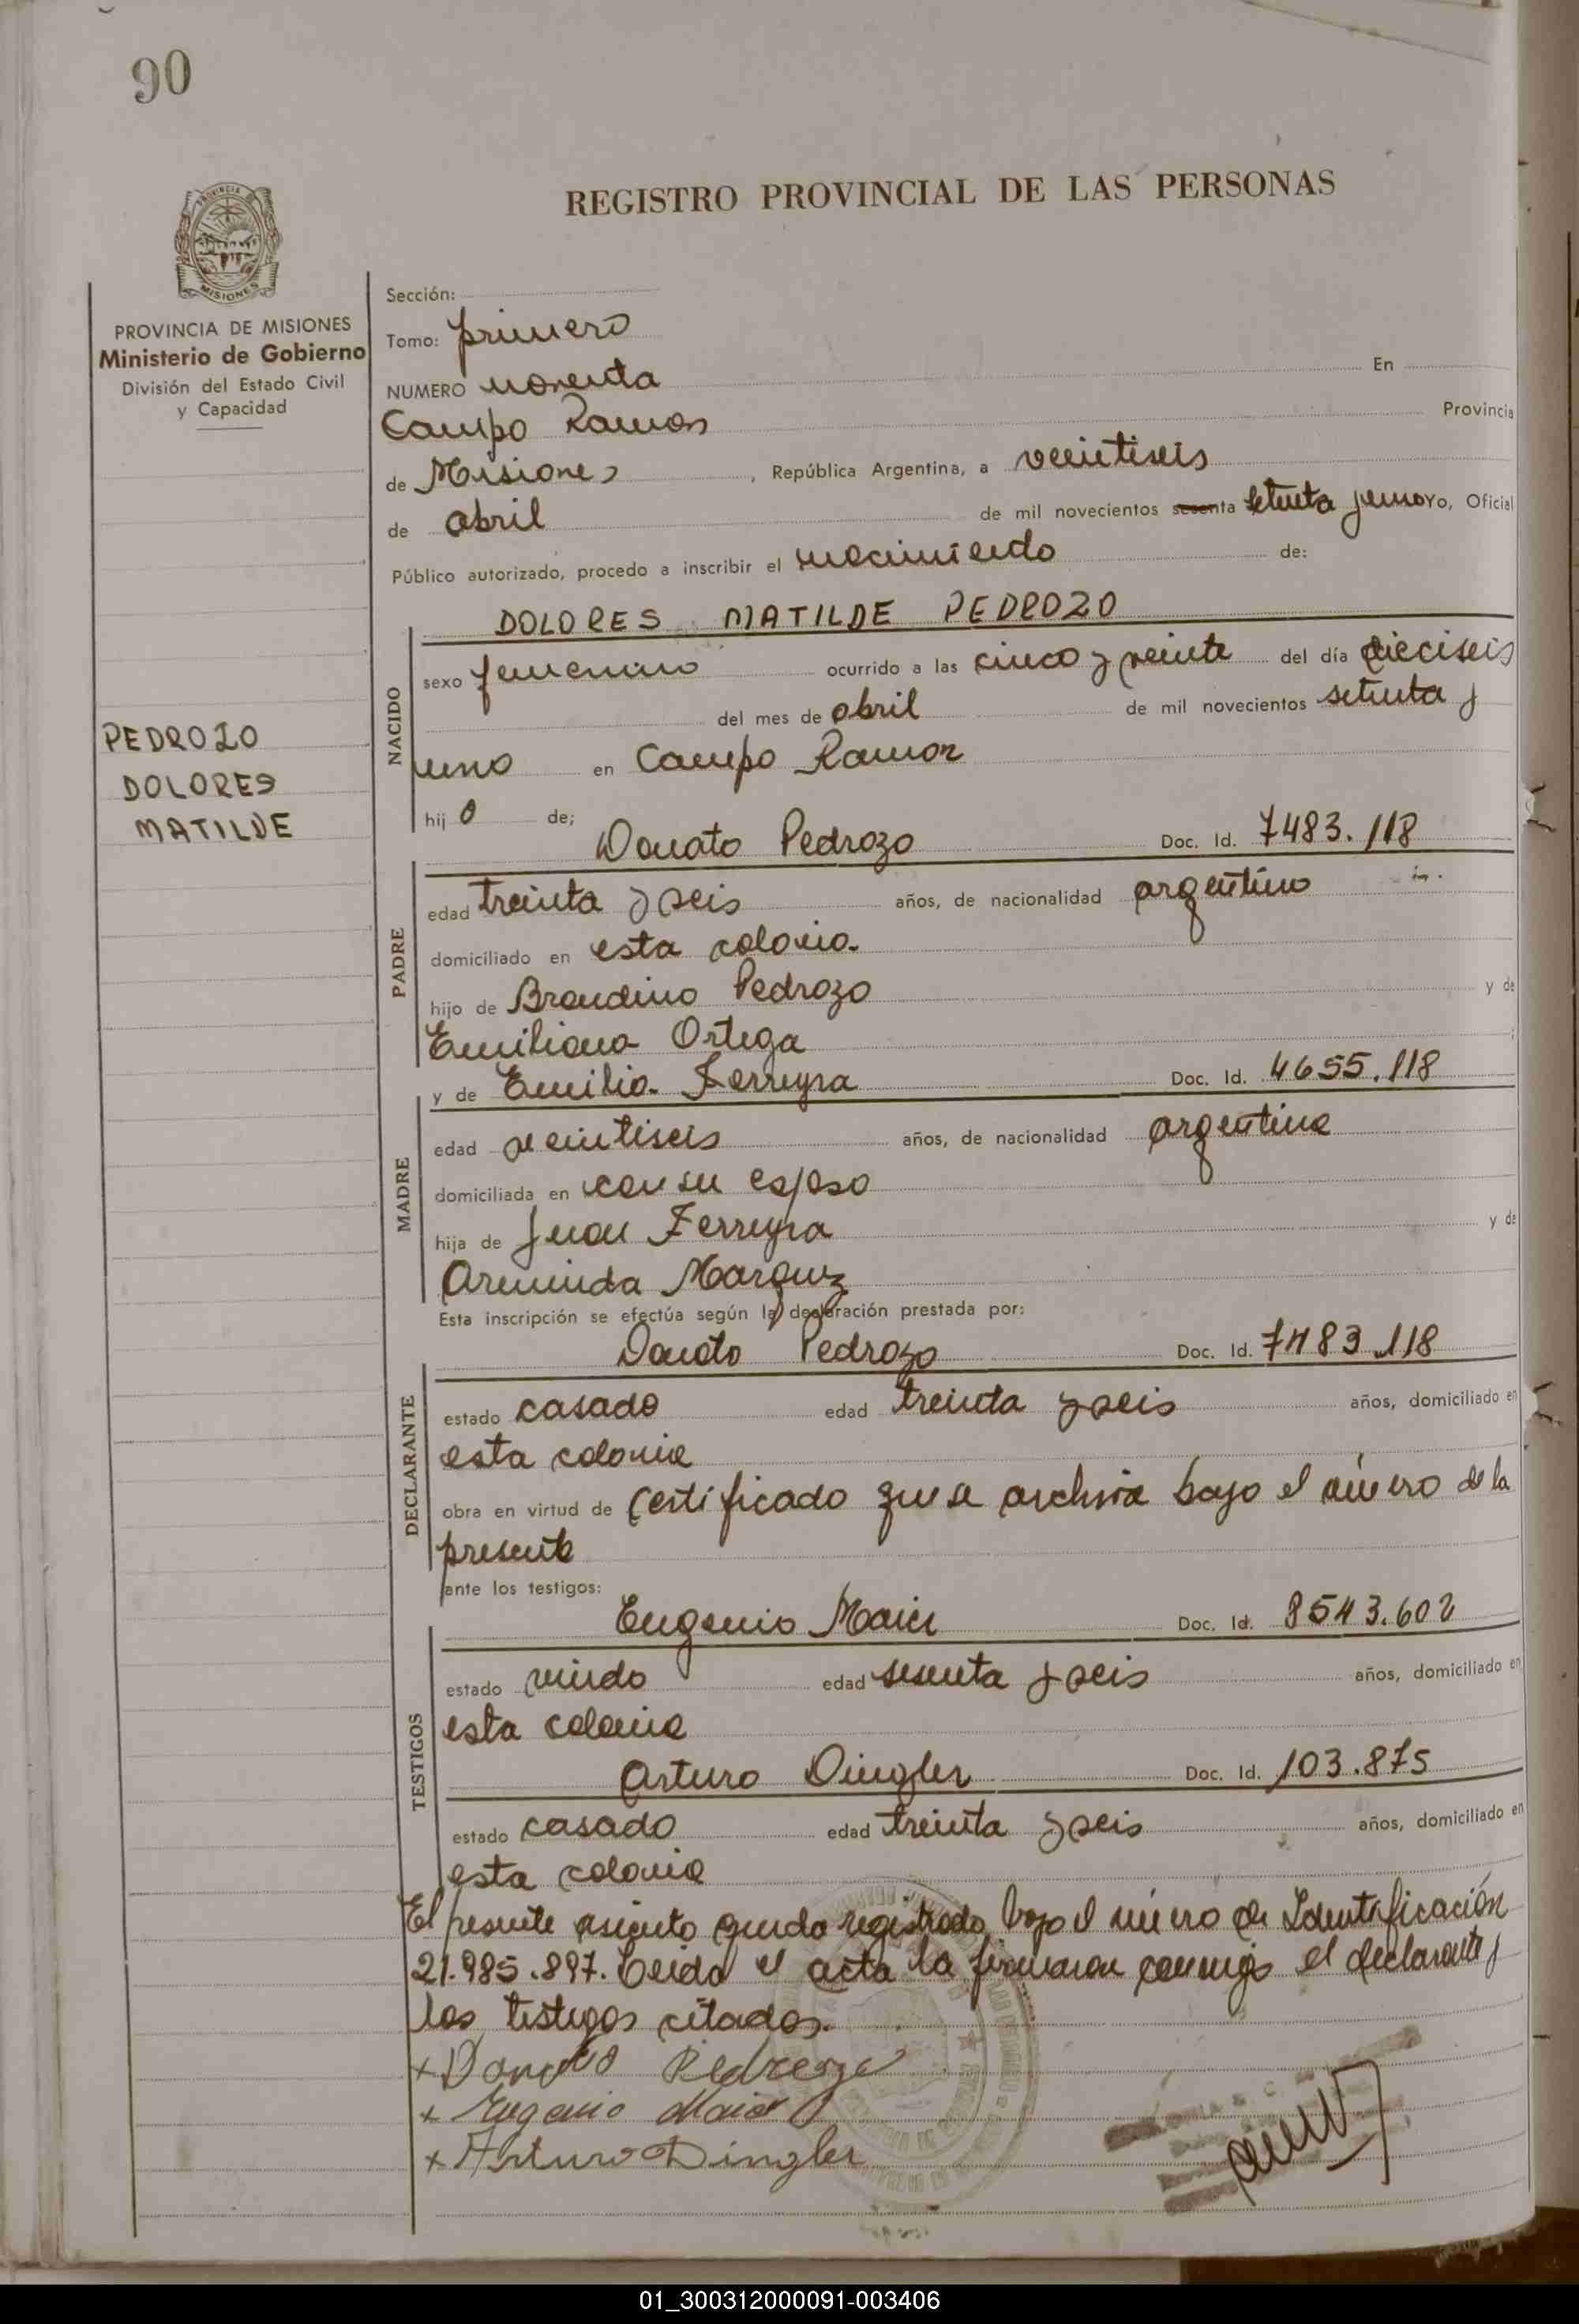 90
REGISTRO PROVINCIAL DE LAS PERSONAS
PROVINCIA
MISIONES
PROVINCIA DE MISIONES
Ministerio de Gobierno
División del Estado Civil
y Capacidad
PEDROZO
DOLORES
MATILDE
Sección:
Tomo: primero
NUMERO noventa En
Campo Ramon Provincia
de Misiones, República Argentina, a veintiseis
de abril de mil novecientos sesenta setenta y uno Yo, Oficial
Público autorizado, procedo a inscribir el nacimiento de:
DOLORES MATILDE PEDROZO
NACIDO
sexo femenino ocurrido a las cinco y veinte del día dieciseis
del mes de abril de mil novecientos setenta y
uno en Campo Ramon
hij o de;
Donato Pedrozo Doc. Id. 7483.118
PADRE
edad treinta y seis años, de nacionalidad argentino
domiciliado en esta colonia.
hijo de Brandino Pedrozo y de
Emiliana Ortega
y de Emilia Ferreyra Doc. Id. 4655.118
MADRE
edad veintiseis años, de nacionalidad argentina
domiciliada en con su esposo
hija de Juan Ferreyra y de
Arminda Marquez
Esta inscripción se efectúa según la declaración prestada por:
Donato Pedrozo Doc. Id. 7483.118
DECLARANTE
estado casado edad treinta y seis años, domiciliado en
esta colonia
obra en virtud de Certificado que se archiva bajo el número de la
presente
ante los testigos:
Eugenio Maier Doc. Id. 8543.602
TESTIGOS
estado viudo edad sesenta y seis años, domiciliado en
esta colonia
Arturo Dingler Doc. Id. 103.875
estado casado edad treinta y seis años, domiciliado en
esta colonia
El presente asiento queda registrado bajo el número de Identificación
21.985.897. Leida el acta la firmaron conmigo el declarante y
los testigos citados.
+ Donato Pedrozo
+ Eugenio Maier
+ Arturo Dingler
01_300312000091-003406